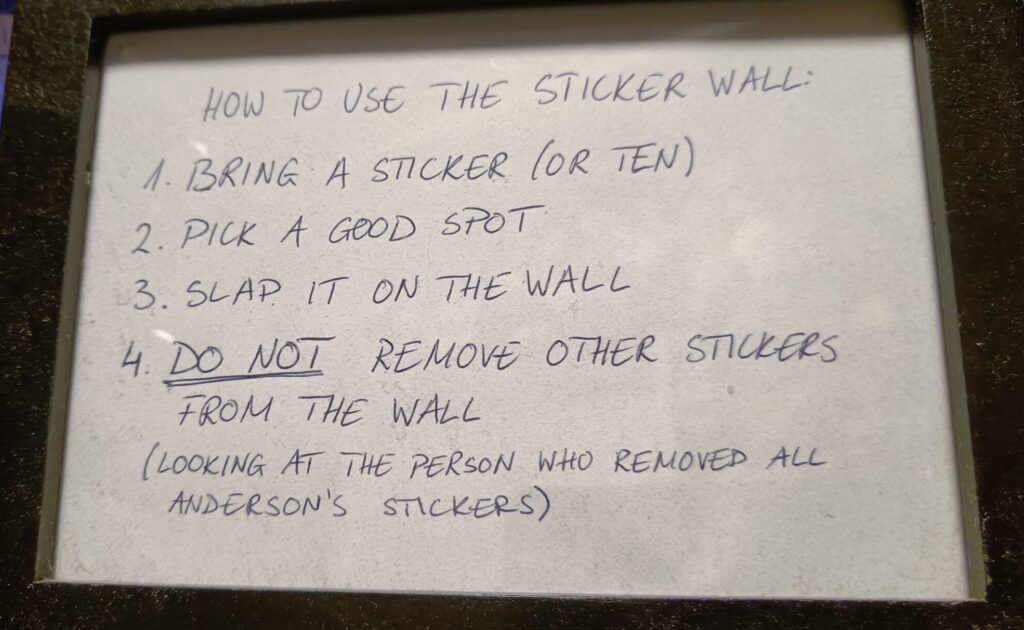 HOW TO USE THE STICKER WALL:
1. BRING A STICKER (OR TEN)
2. PICK A GOOD SPOT
3. SLAP IT ON THE WALL
4. DO NOT REMOVE OTHER STICKERS
FROM THE WALL
(LOOKING AT THE PERSON WHO REMOVED ALL
ANDERSON'S STICKERS)